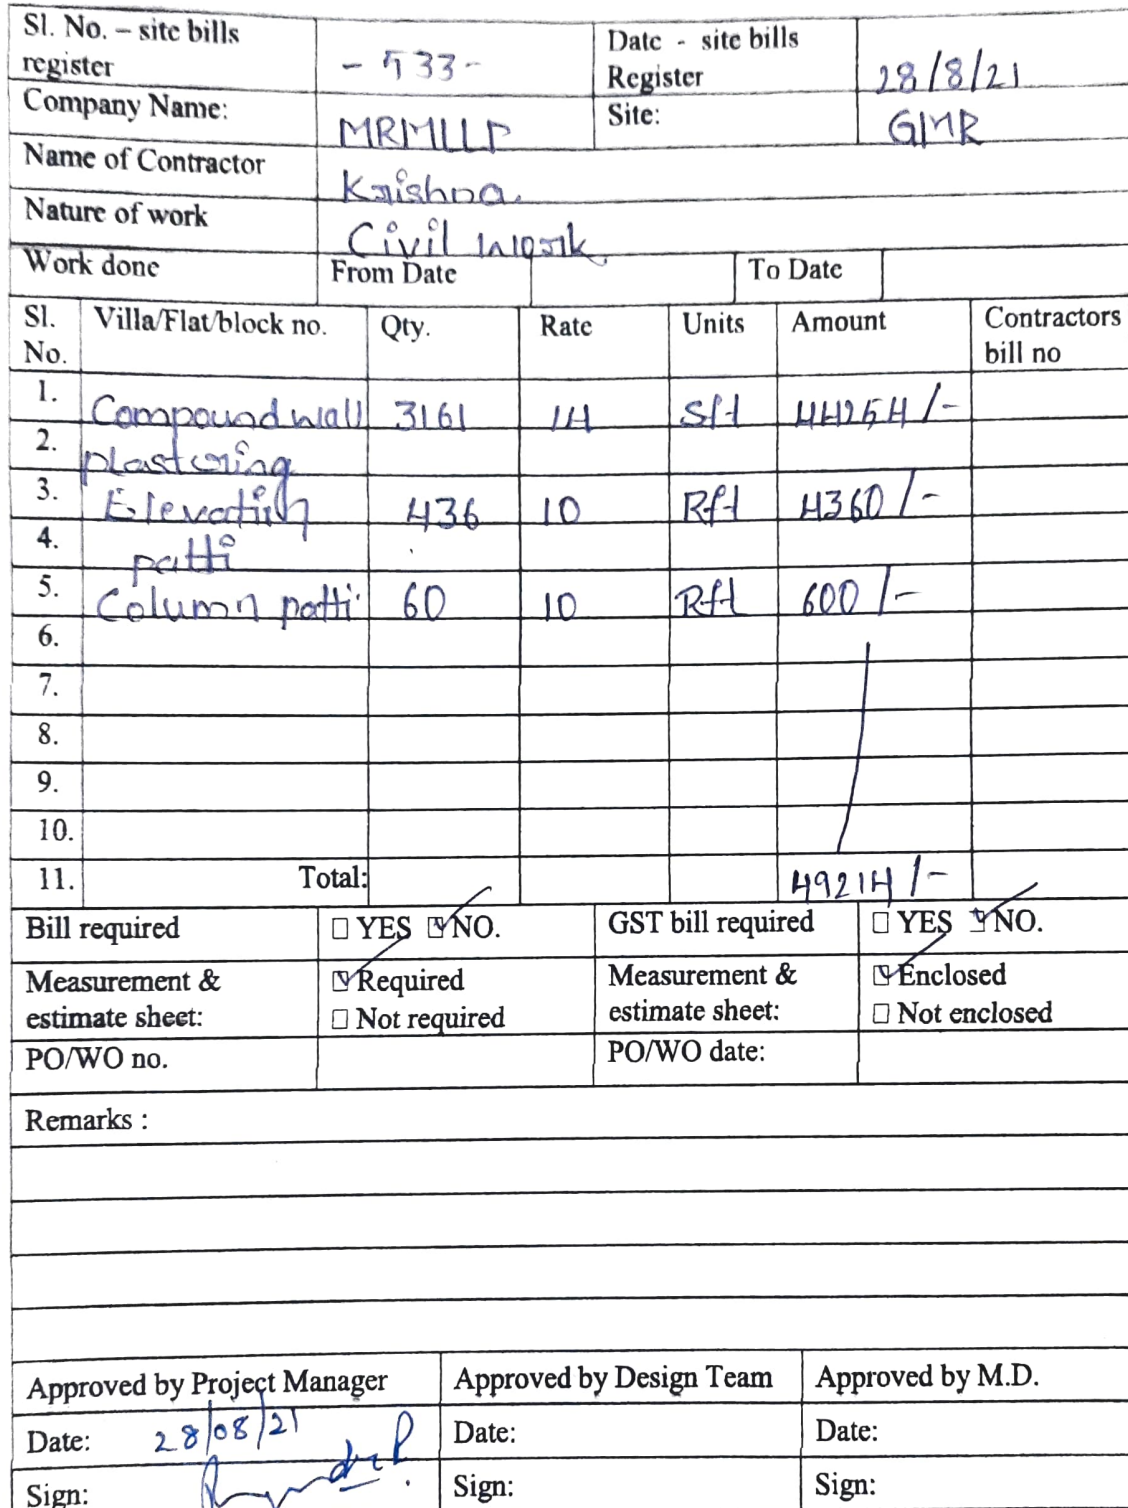 Sl. No. – site bills register - 533- Date - site bills Register 28/8/21
Company Name: MRMLLP Site: GMR
Name of Contractor Krishna.
Nature of work Civil work.
Work done From Date To Date
Sl. No. Villa/Flat/block no. Qty. Rate Units Amount Contractors bill no
1. Compound wall 3161 14 Sft 44254/-
2. plastering
3. Elevation 436 10 Rft 4360/-
4. patti
5. Column patti 60 10 Rft 600/-
6.
7.
8.
9.
10.
11. Total: 49214/-
Bill required YES NO. GST bill required YES NO.
Measurement & estimate sheet: Required Not required Measurement & estimate sheet: Enclosed Not enclosed
PO/WO no. PO/WO date:
Remarks :
Approved by Project Manager Approved by Design Team Approved by M.D.
Date: 28/08/21 Date: Date:
Sign: Sign: Sign: